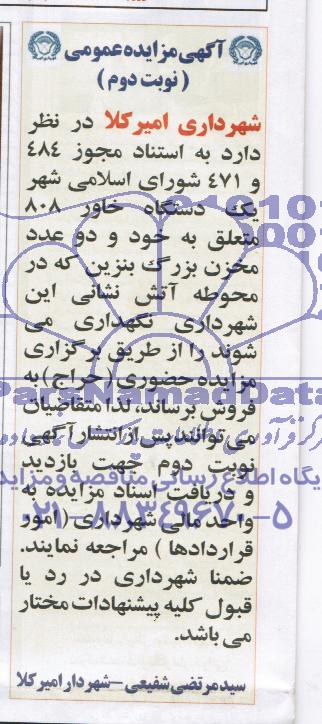 آگهی مزایده عمومی
(نوبت دوم)
شهرداری امیرکلا در نظر
دارد به استناد مجوز ٤٨٤
و ٤٧١ شورای اسلامی شهر
یک دستگاه خاور ٨٠٨
متعلق به خود و دو عدد
مخزن بزرگ بنزین که در
محوطه آتش نشانی این
شهرداری نگهداری می
شوند را از طریق برگزاری
مزایده حضوری (حراج) به
فروش برساند، لذا متقاضیان
می توانند پس از انتشار آگهی
نوبت دوم جهت بازدید
و دریافت اسناد مزایده به
واحد مالی شهرداری (امور
قراردادها) مراجعه نمایند.
ضمنا شهرداری در رد یا
قبول کلیه پیشنهادات مختار
می باشد.
سید مرتضی شفیعی – شهردار امیرکلا
ParsNamadData
پایگاه اطلاع رسانی مناقصه و مزایده
۰۲۱-۸۸۳۴۹۶۷۰-۵